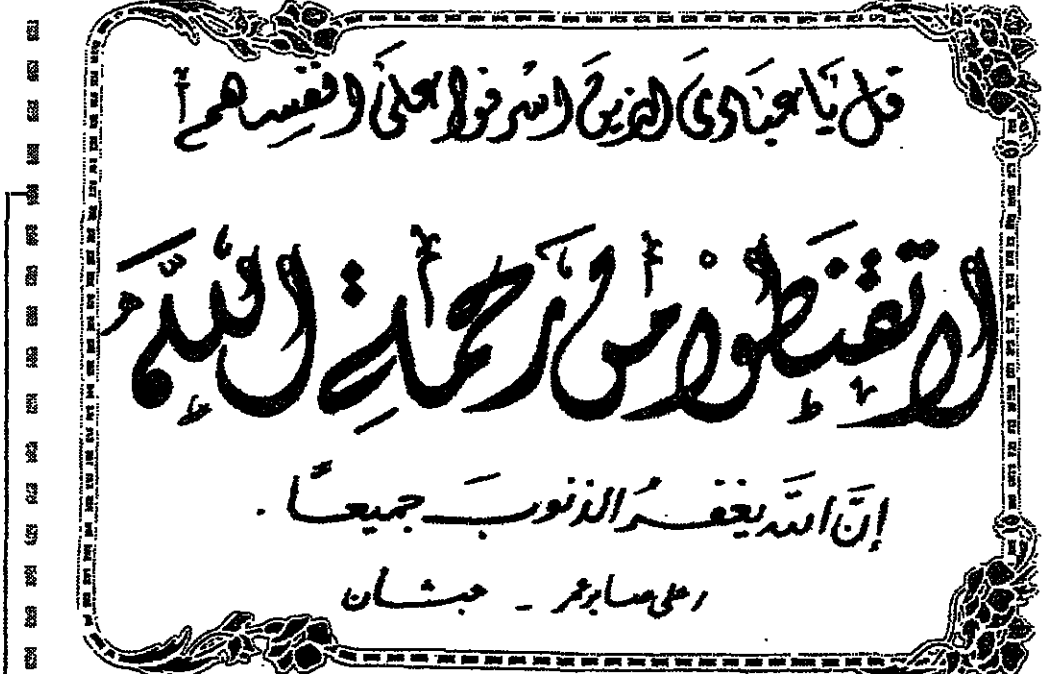 قل يا عبادى الذين اسرفوا على انفسهم
لا تقنطوا من رحمة الله
إنّ الله يغفر الذنوب جميعاً .
على صابر عمر - حبشان